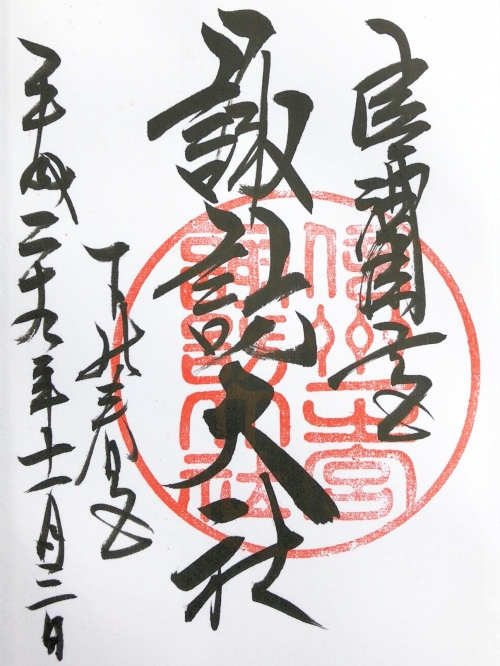 信濃國一宮
諏訪大社
下社春宮
平成二十九年十一月二日
信州一宮
諏訪大社